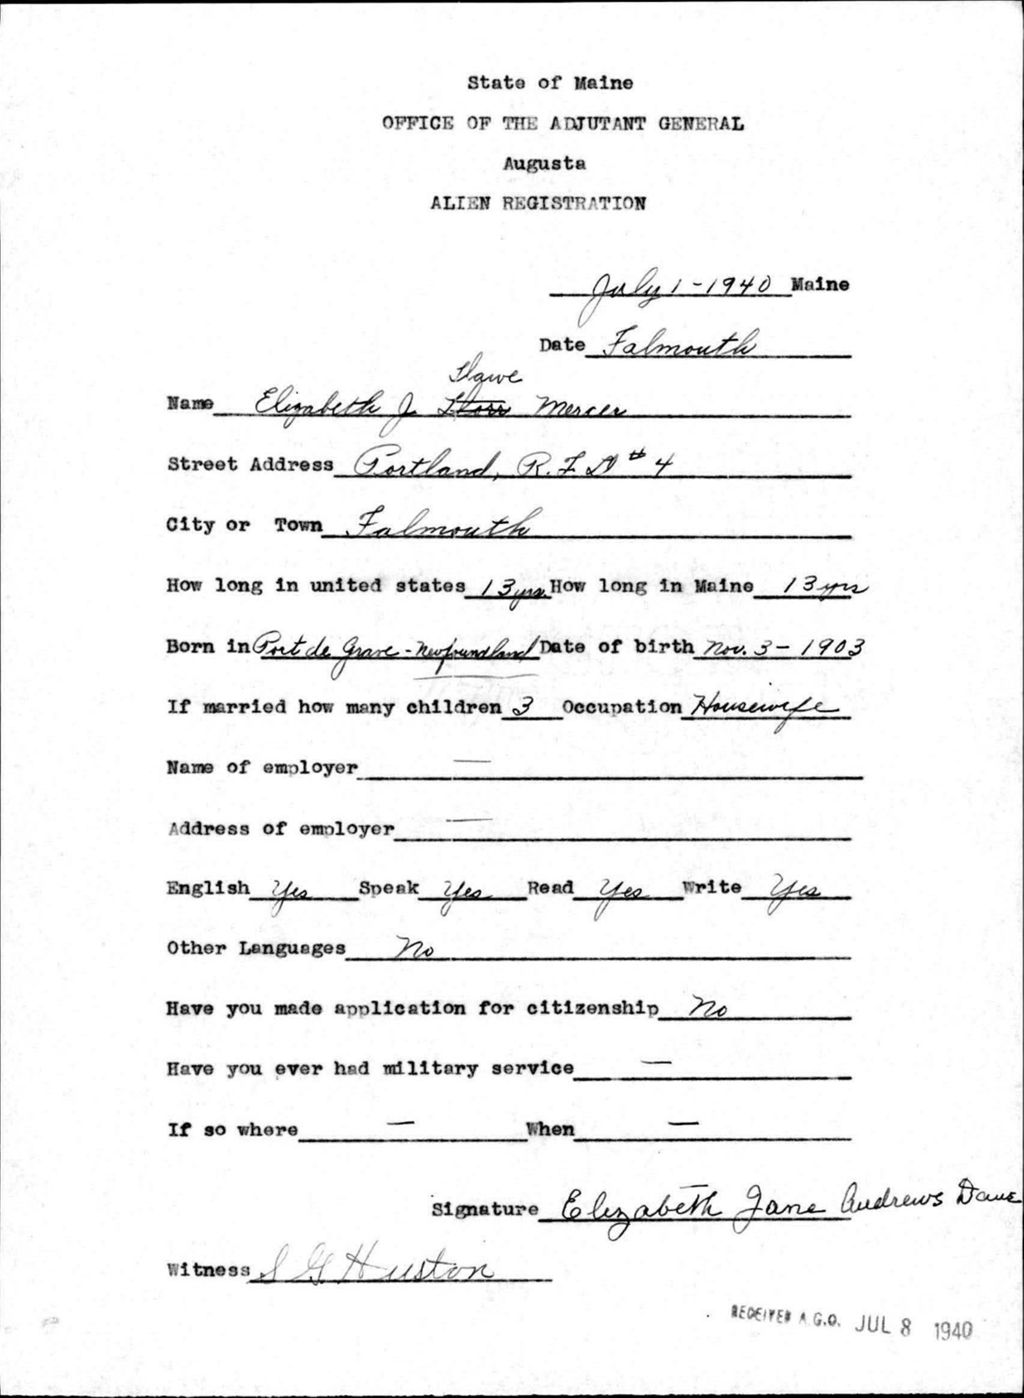 State of Maine
OFFICE OF THE ADJUTANT GENERAL
Augusta
ALIEN REGISTRATION
July 1-1940 Maine
Date Falmouth
Name Elizabeth J. Mercer
Street Address Portland, R.F.D #4
City or Town Falmouth
How long in united states 13 yrs. How long in Maine 13 yrs
Born in Port de Grave - Newfoundland Date of birth Nov. 3 - 1903
If married how many children 3 Occupation Housewife
Name of employer —
Address of employer —
English Yes Speak Yes Read Yes Write Yes
Other Languages No
Have you made application for citizenship No
Have you ever had military service —
If so where — When —
Signature Elizabeth Jane Andrews Dawe
Witness S G Huston
RECEIVED A.G.O. JUL 8 1940